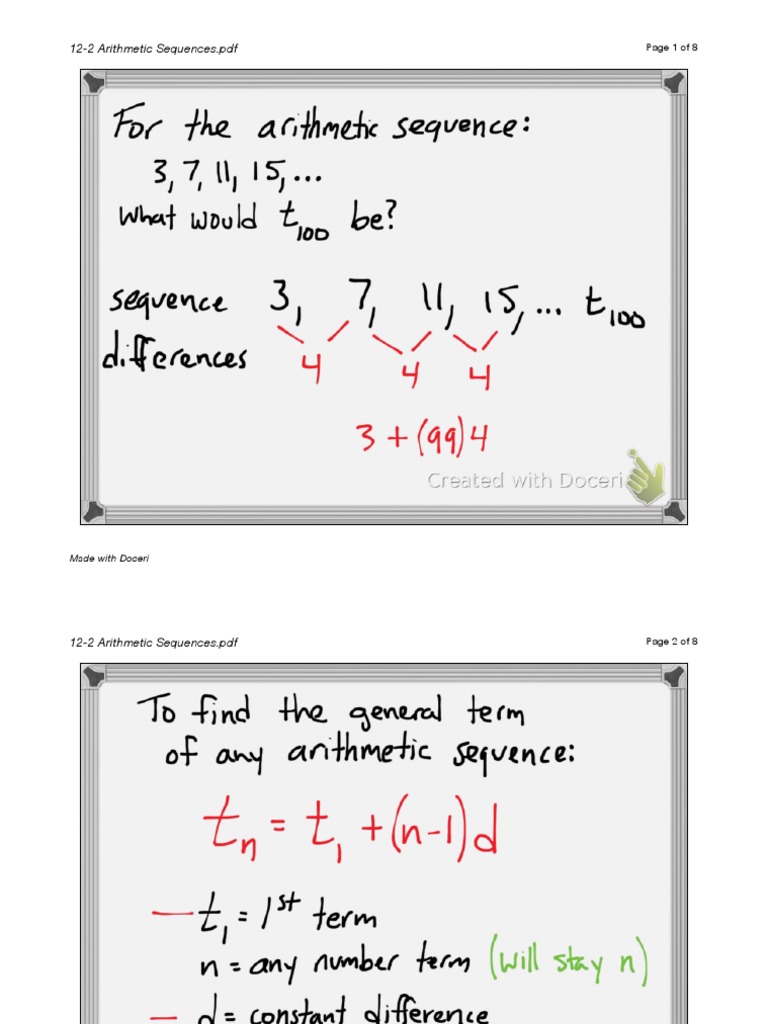 12-2 Arithmetic Sequences.pdf Page 1 of 8
For the arithmetic sequence:
3, 7, 11, 15, ...
what would t₁₀₀ be?
sequence 3, 7, 11, 15, ... t₁₀₀
differences 4 4 4
3 + (99)4
Created with Doceri
Made with Doceri
12-2 Arithmetic Sequences.pdf Page 2 of 8
To find the general term
of any arithmetic sequence:
tₙ = t₁ + (n-1)d
— t₁ = 1ˢᵗ term
n = any number term (will stay n)
— d = constant difference